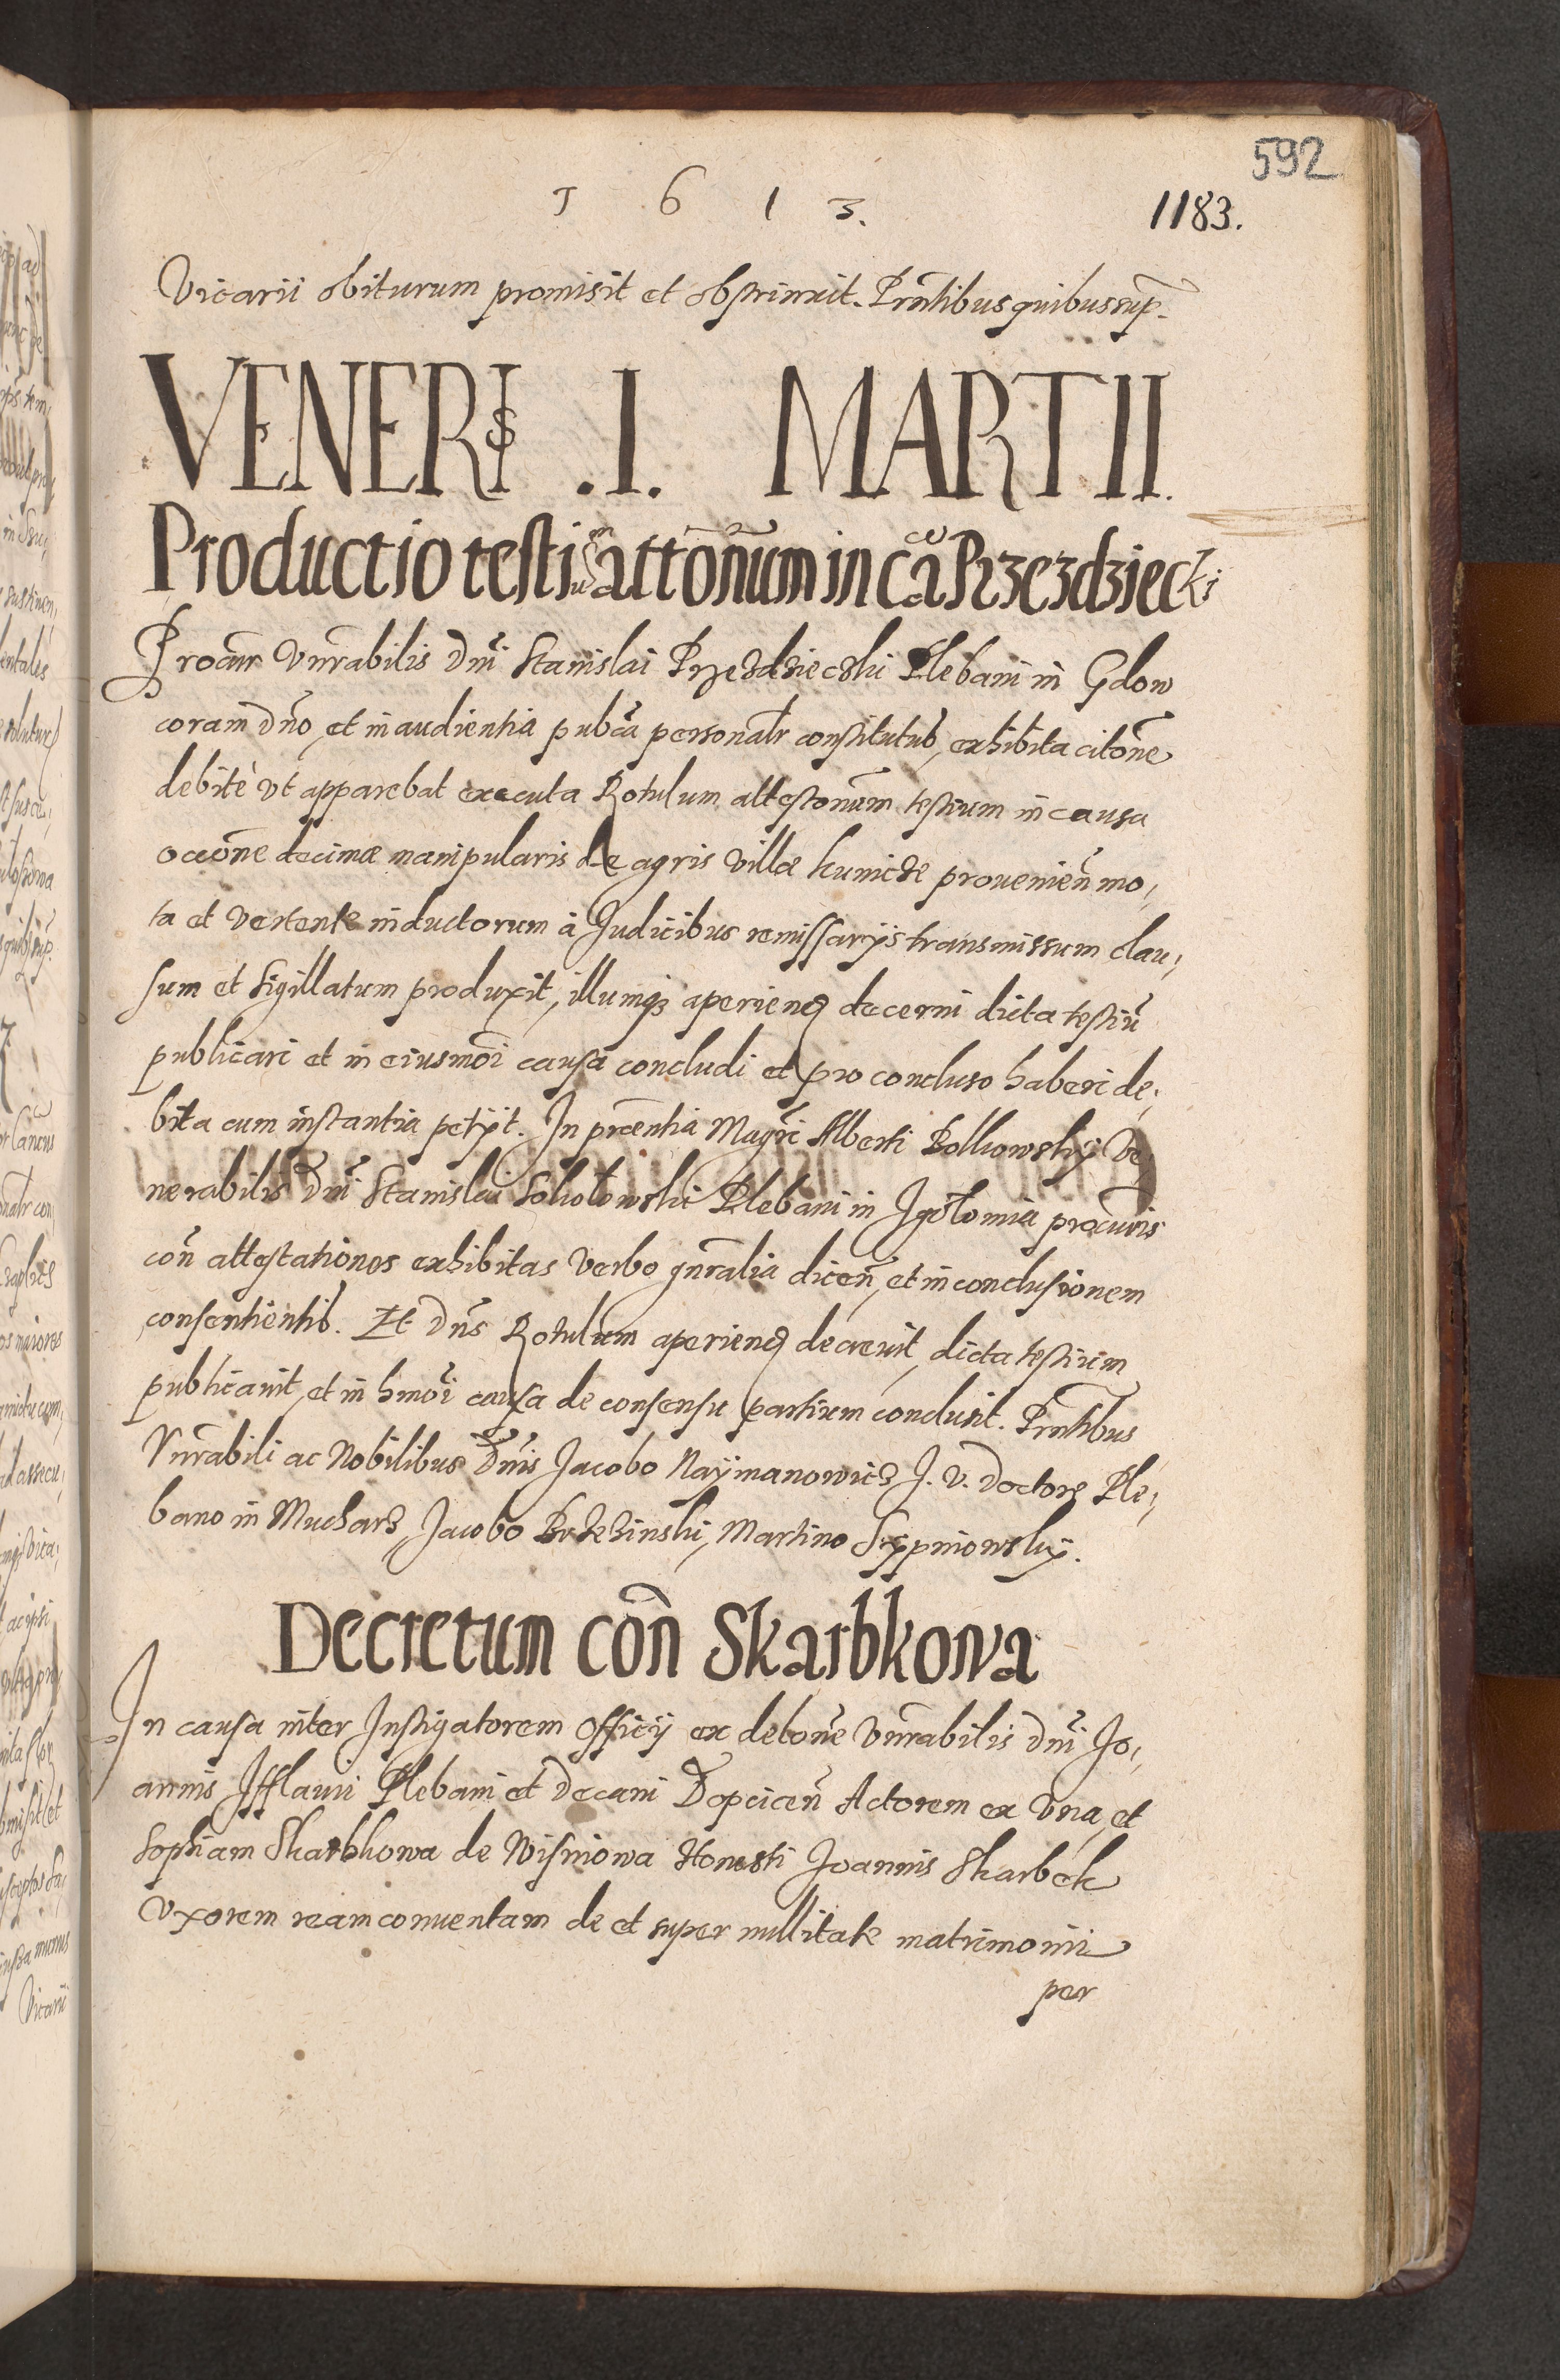 592
1 6 1 3.
1183.
Vicarii obiturum promisit et obstrinxit. Prñtibus quibus sup̃.
VENERIS .I. MARTII.
Productio testium attõnum in cã Przezdziecki
Procur Vnrabilis Dñi Stanislai Przezdzieczki Plebani in Gdow
coram dño, et in audientia pubca personalr constitutus, exhibita citoñe
debitè vt apparebat executa Rotulum attestonum testium in causa
occõne decimæ manipularis de agris villæ kunicze prouenieñ mo,
ta et vertente inductorum à Judicibus remissarijs transmissum clau,
sum et sigillatum produxit, illumq3 aperiend decerni dicta testiũ
publicari et in eiusmoi causa concludi et pro concluso haberi de,
bita cum instantia petijt. In prñtia Magri Alberti Bolkowskij Ve,
nerabilis Dñi Stanislai Sokołowski Plebani in Igołomia procuris
coñ attestationes exhibitas verbo gnralia diceñ, et in conclusionem
consentientis. Et Dñs Rotulum aperiend decreuit, dicta testium
publicauit, et in hmoi causa de consensu partium conclusit. Prñtibus
Vnrabili ac Nobilibus Dñis Jacobo Naymanowicz J. V. doctore Ple,
bano in Mucharz, Jacobo Brzezinski, Martino Sypniowskij.
Decretum coñ Skarbkowa
In causa inter Instigatorem officij ex delone Vnrabilis Dñi Jo,
annis Ifflauri Plebani et Decani Dopciceñ Actorem ex vna, et
Sophiam Skarbkowa de Wisniowa Honesti Joannis Skarbek
vxorem ream conuentam de et super nullitate matrimonii
per